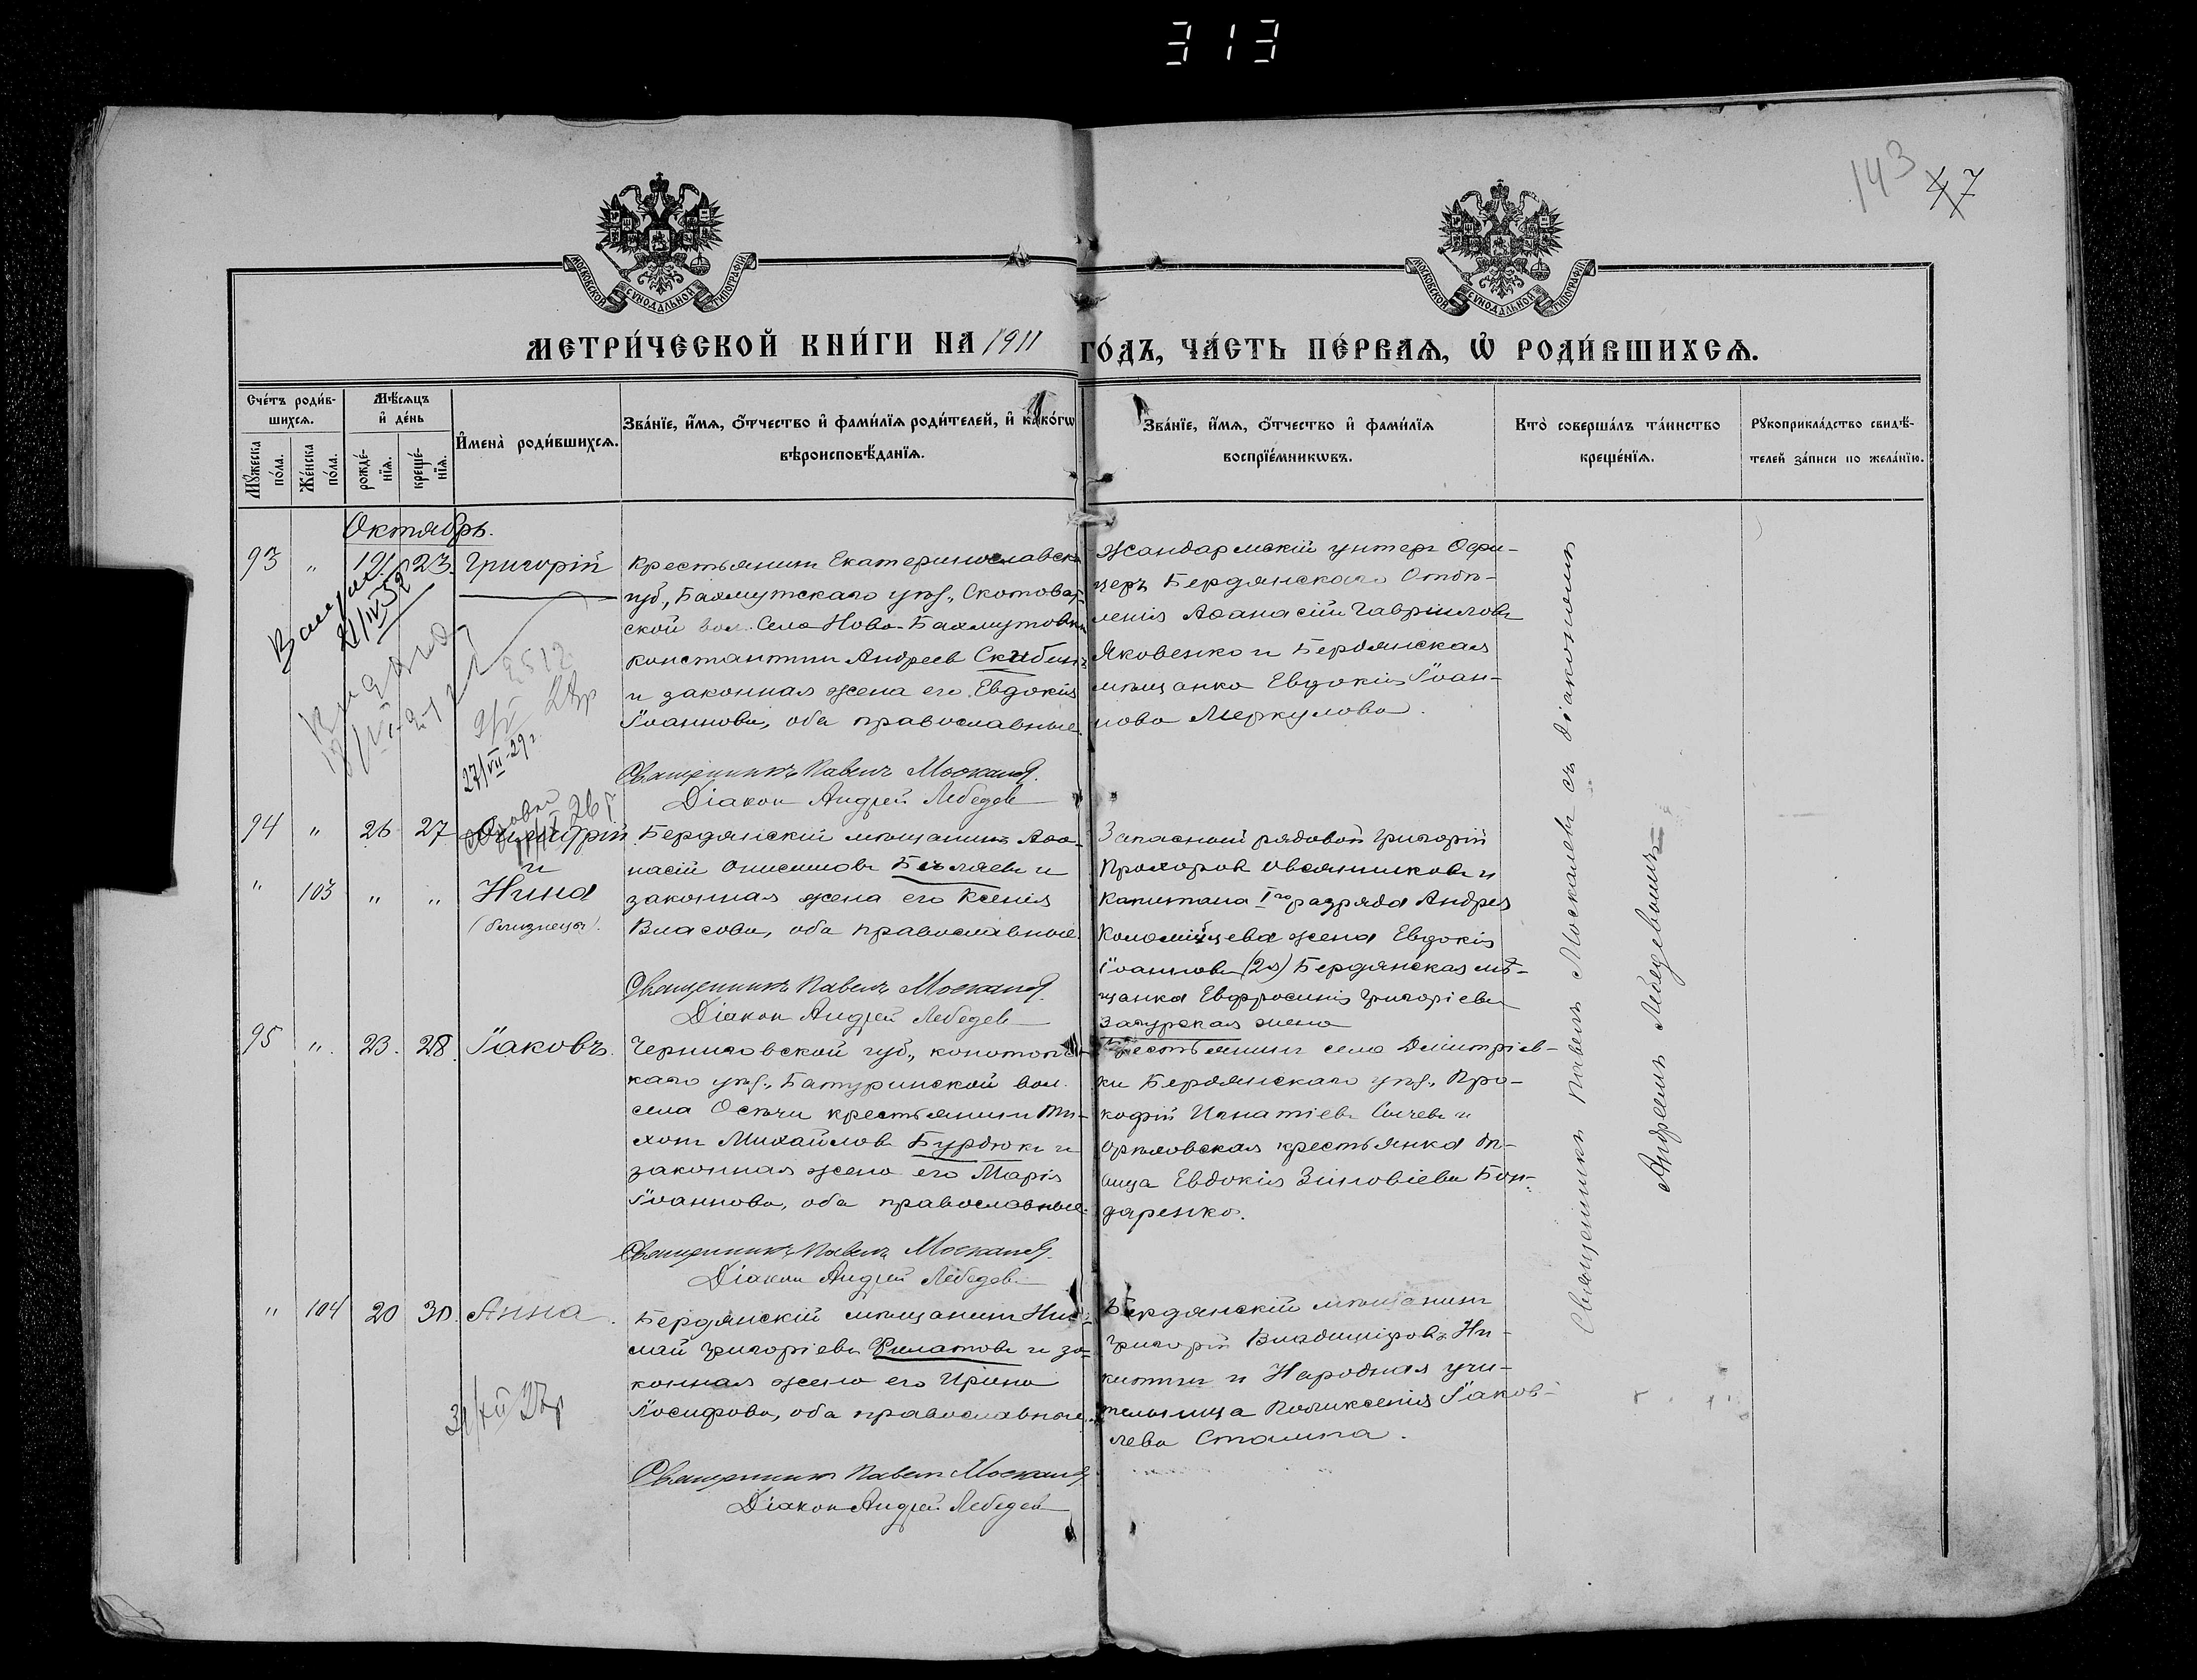 313
143
47
МОСКОВСКОЙ СѴНОДАЛЬНОЙ ТИПОГРАФІИ
МОСКОВСКОЙ СѴНОДАЛЬНОЙ ТИПОГРАФІИ
МЕТРИ́ЧЕСКОЙ КНИ́ГИ НА 1911 ГО́ДЪ, ЧА́СТЬ ПЕ́РВАѦ, Ѡ҆ РОДИ́ВШИХСѦ.
Сче́тъ роди́в-
шихсѧ.
Мꙋ́жеска по́ла.
Же́нска по́ла.
Мѣ́сѧцъ
и҆ де́нь
рожде́-
нїѧ.
креще́-
нїѧ.
И҆мена̀ роди́вшихсѧ.
Зва́нїе, и҆́мѧ, ѻ҆́тчество и҆ фами́лїѧ роди́телей, и҆ како́гѡ
вѣроисповѣ́данїѧ.
Зва́нїе, и҆́мѧ, ѻ҆́тчество и҆ фами́лїѧ
воспрїе́мникѡвъ.
Кто̀ соверша́лъ та́инство
креще́нїѧ.
Рꙋкоприкла́дство свидѣ́-
телей за́писи по жела́нїю.
Октябрь.
93 " 19 23. Григорій
Крестьянинъ Екатеринославск
губ., Бахмутскаго уѣз., Скотоват
ской вол. Села Ново-Бахмутовки
Константинъ Андреев Скибинъ
и законная жена его Евдокія
Іоаннова, оба православные.
Священникъ Павелъ Москалев
Діакон Андрей Лебедев
Жандармскій унтеръ Офи-
церъ Бердянскаго Отдѣ-
ленія Аѳанасій Гавриловъ
Яковенко и Бердянская
мѣщанка Евдокія Іоан-
нова Меркулова.
21/IV 32
27/VII-29г.
94 " 26 27
и
" 103 " " Нина
(близнецы).
Бердянскій мѣщанинъ Аѳа-
насій Онисимовъ Бѣляевъ и
законная жена его Ксенія
Власова, оба православные.
Священникъ Павелъ Москалев
Діакон Андрей Лебедев
Запасный рядовой Григорій
Прохоровъ Овсянниковъ и
Капитана Iго разряда Андрея
Коломійцева жена Евдокія
Іоаннова (2я) Бердянская мѣ-
щанка Евфросинія Григоріева
95 " 23. 28. Іаковъ.
Черниговской губ., Конотопс-
каго уѣз., Батуринской вол.
села Осѣчи крестьянинъ Ти-
хон Михайлов Бурдюкъ и
законная жена его Марія
Іоаннова, оба православные.
Священникъ Павелъ Москалев
Діакон Андрей Лебедев
Крестьянинъ села Дмитріев-
ки Бердянскаго уѣз. Про-
кофій Игнатіевъ Сычевъ и
Орѣховская крестьянка дѣ-
вица Евдокія Зиновіева Бон-
даренко.
" 104 20 30. Анна.
Бердянскій мѣщанинъ Нико-
лай Григоріевъ Филатовъ и за-
конная жена его Ирина
Іосифова, оба православные.
Священникъ Павелъ Москалев
Діакон Андрей Лебедев
Бердянскій мѣщанинъ
Григорій Владиміровъ Ни-
китин и Народная учи-
тельница Поликсенія Іаков-
лева Сталина.
Священникъ Павелъ Москалевъ съ діакономъ
Андреемъ Лебедевымъ